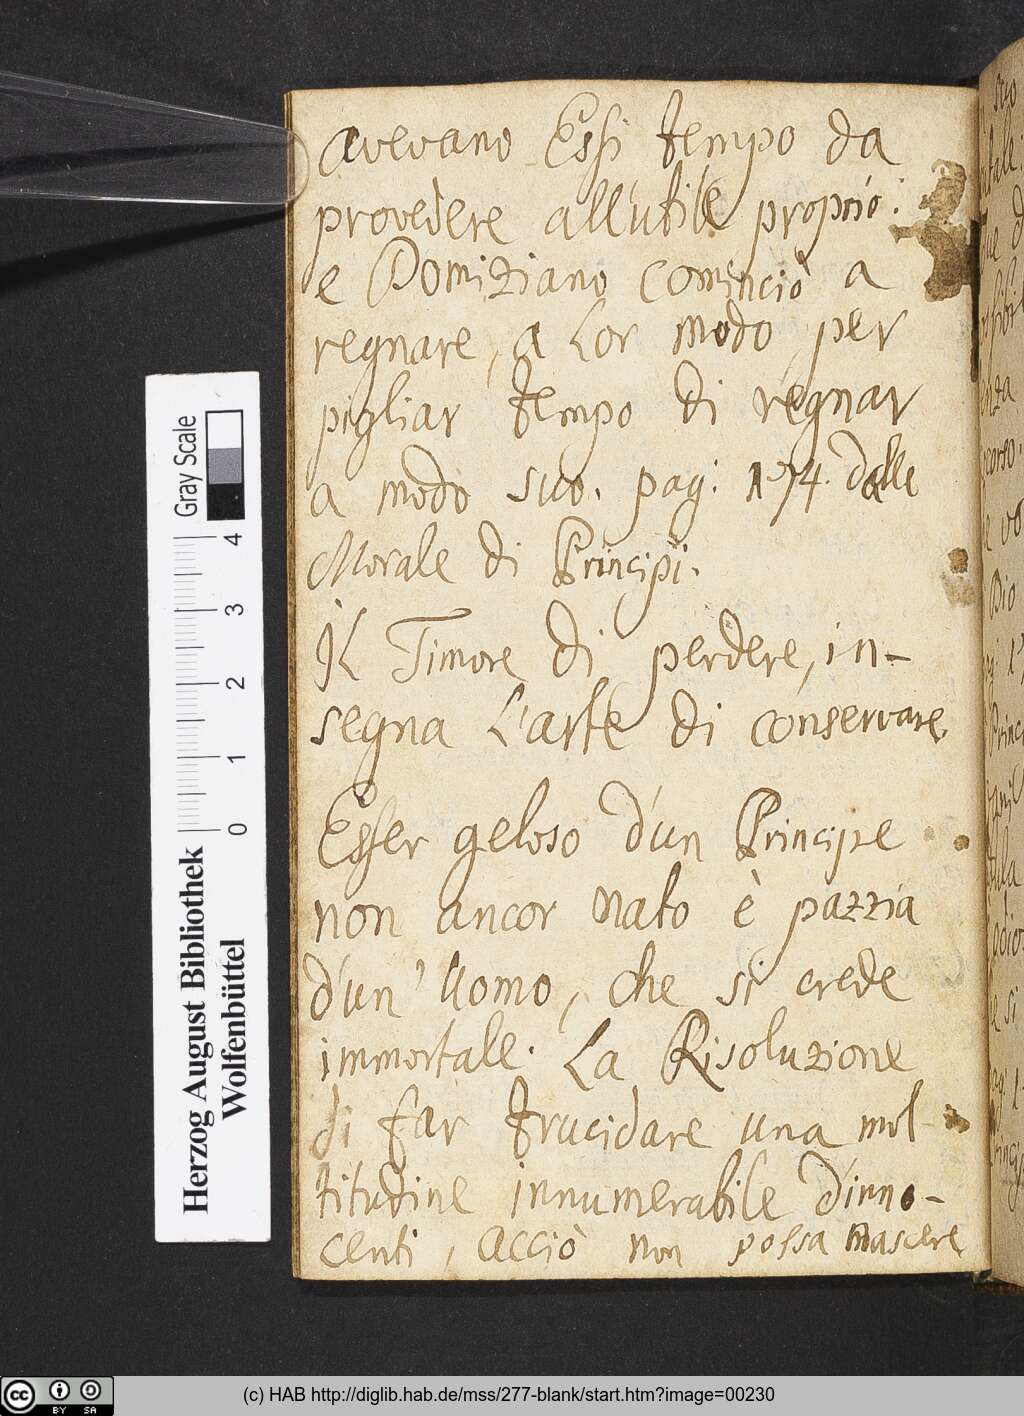 avevano Essi tempo da
provedere all'utile proprio:
e Domiziano cominciò a
regnare, a Lor modo, per
pigliar tempo di regnar
a modo suo. pag: 174. dalle
Morale di Principi.
Il Timore di perdere, in-
segna L'arte di conservare.
Esser geloso d'un Principe
non ancor nato è pazzia
d'un' Uomo, che si crede
immortale. La Risoluzione
di far trucidare una mol-
titudine innumerabile d'inno-
centi, acciò non possa nascere
Gray Scale
4
3
2
1
0
Herzog August Bibliothek
Wolfenbüttel
(c) HAB http://diglib.hab.de/mss/277-blank/start.htm?image=00230
cc BY SA